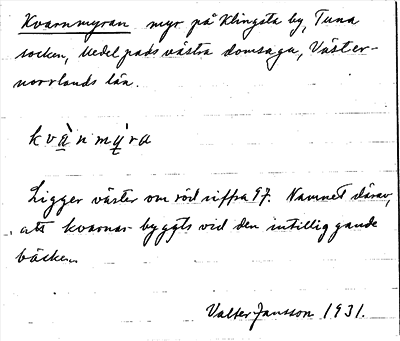 Kvarnmyran myr på Klingsta by, Tuna
socken, Medelpads västra domsaga, Väster-
norrlands län.
kvànmy̌ra
Ligger väster om röd siffra 97. Namnet därav,
att kvarnar byggts vid den intilliggande
bäcken.
Valter Jansson 1931.